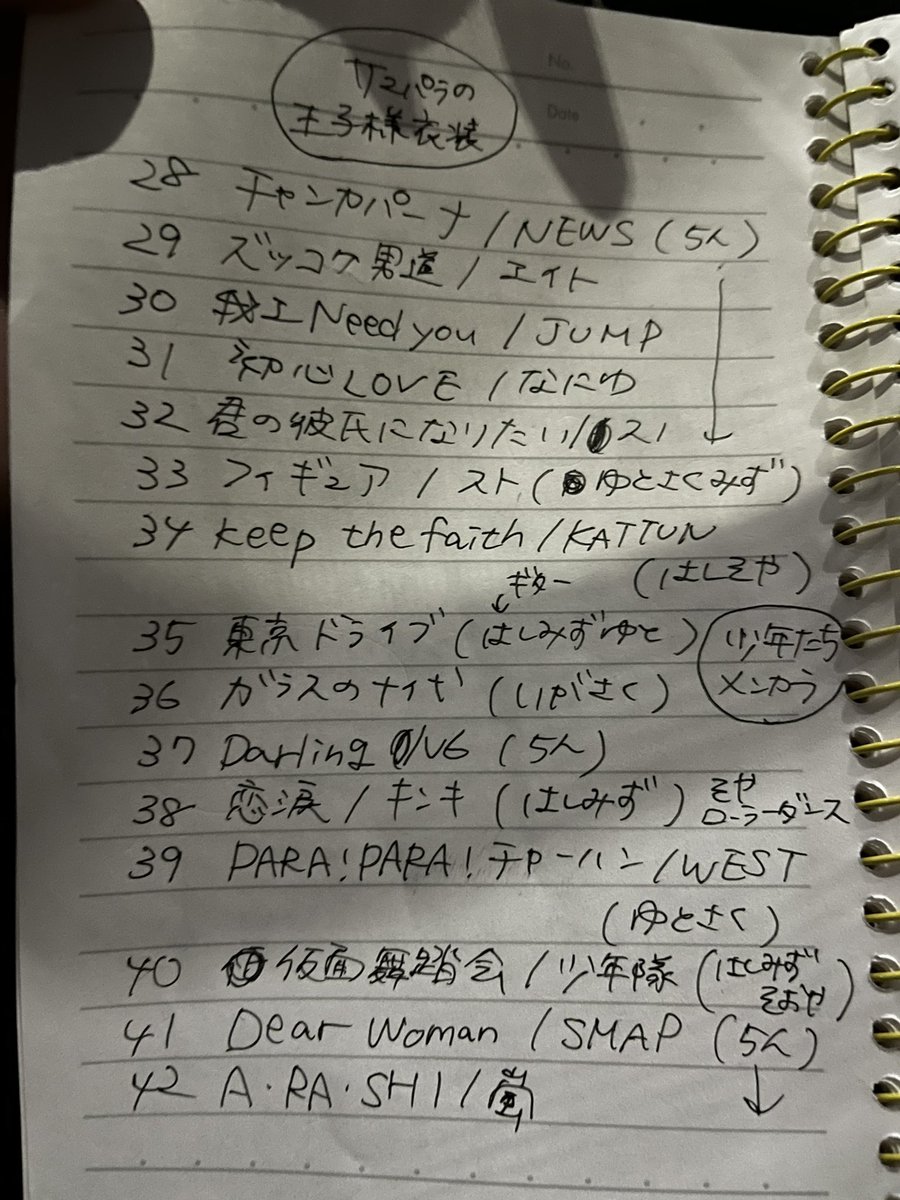 No.
Date
サマパラの
王子様衣装
28 チャンカパーナ / NEWS (5人)
29 ズッコケ男道 / エイト
30 我 I Need you / JUMP
31 初心LOVE / なにゆ
32 君の彼氏になりたい / スト
33 フィギュア / スト (ゆとさくみず)
34 keep the faith / KATTUN
(はしそや)
ギター
35 東京ドライブ (はしみずゆと)
少年たち
メンカラ
36 ガラスのナイヤ (いがさく)
37 Darling / V6 (5人)
38 恋涙 / キンキ (はしみず) そや
ローラーダンス
39 PARA!PARA!チャーハン / WEST
(ゆとさく)
40 仮面舞踏会 / 少年隊 (はしみず
そおや)
41 Dear Woman / SMAP (5人)
42 A・RA・SHI / 嵐